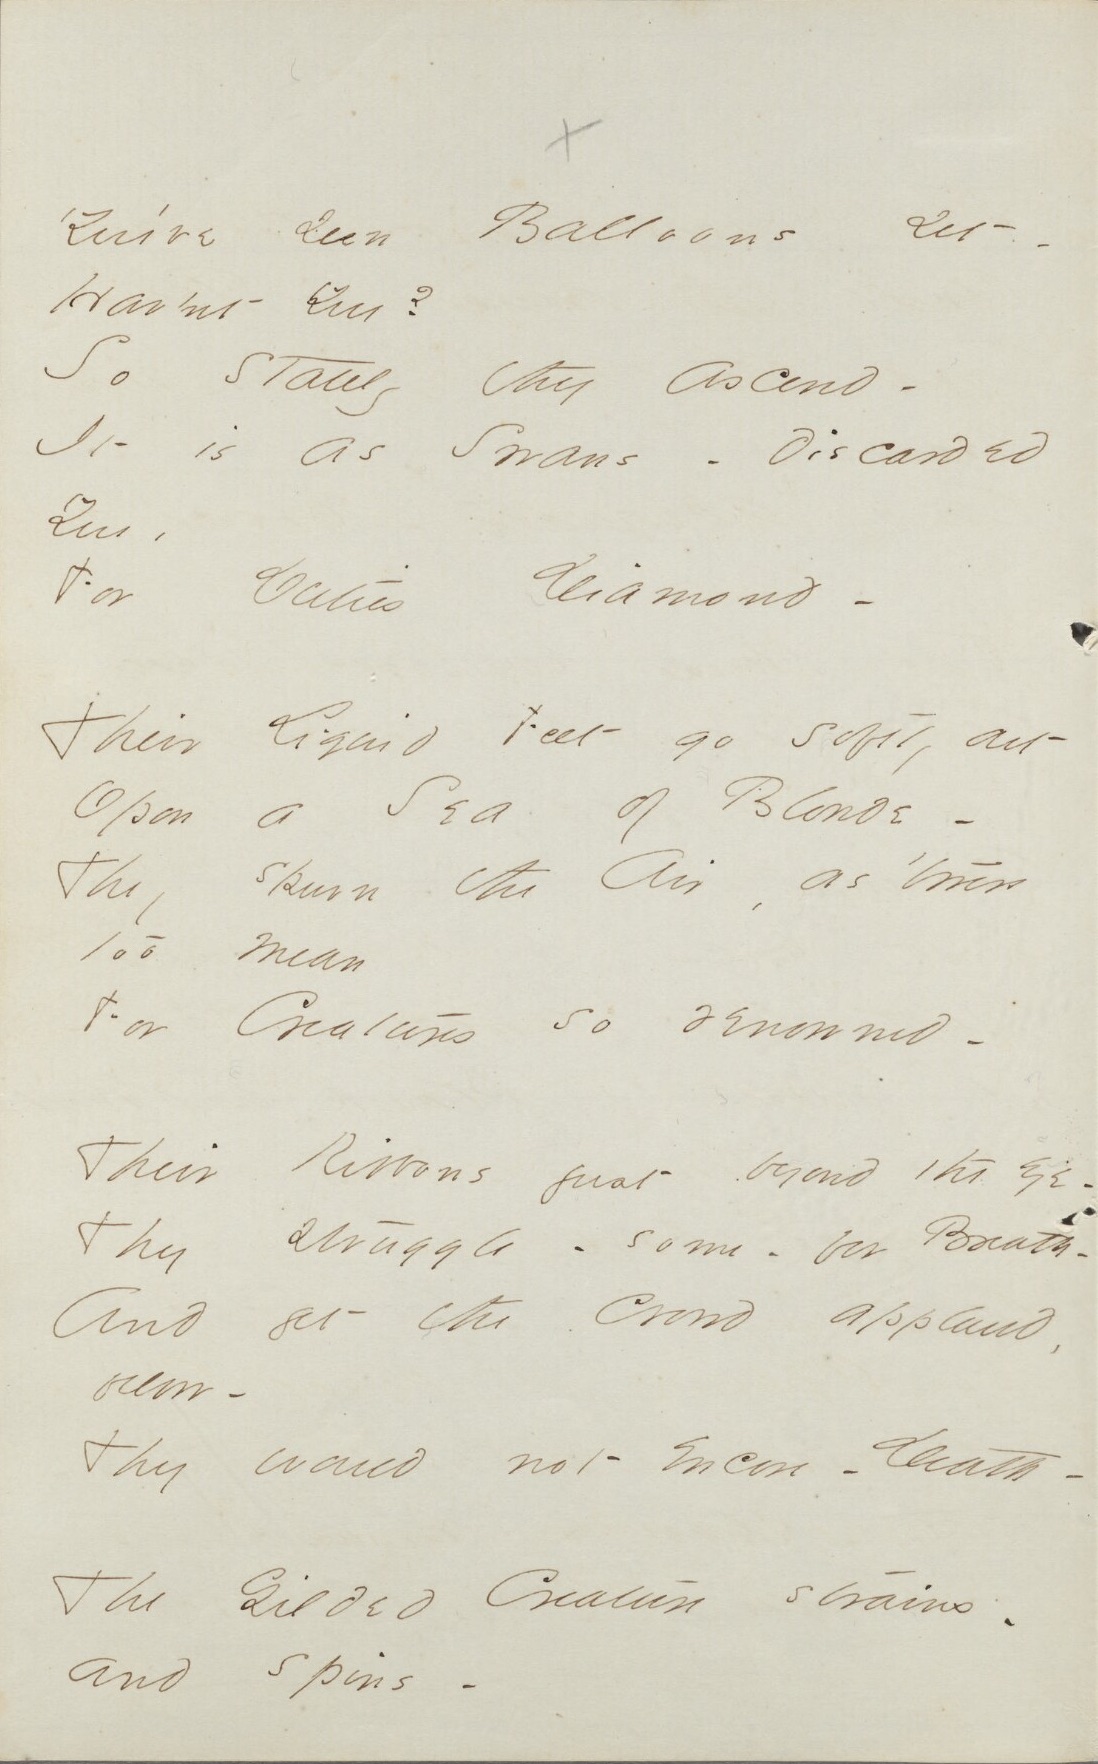 You've seen Balloons set -
Hav'nt You?
So stately they ascend -
It is as Swans - discarded
You,
For Duties Diamond -
Their Liquid Feet go softly out
Opon a Sea of Blonde -
They spurn the Air, as 'twere
too mean
For Creatures so renowned -
Their Ribbons just beyond the eye -
They struggle - some - for Breath -
And yet the Crowd applaud,
below -
They would not encore - Death -
The Gilded Creature strains -
and spins -